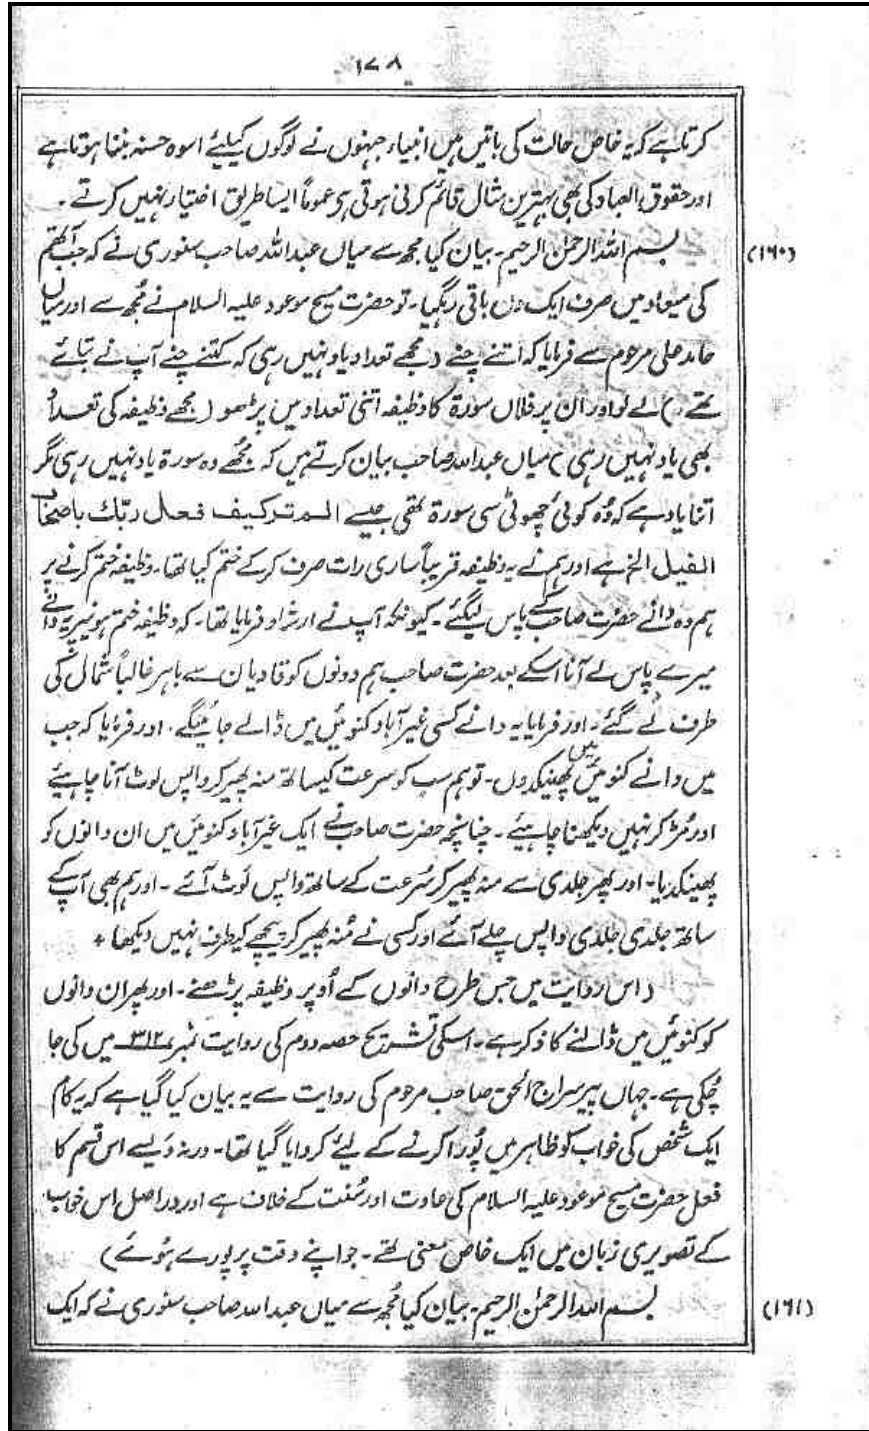 ۱۷۸
کرتا ہے کہ یہ خاص حالت کی باتیں ہیں انبیاء جنہوں نے لوگوں کیلئے اسوہ حسنہ بننا ہوتا ہے
اور حقوق العباد کی بھی بہترین مثال قائم کرنی ہوتی ہے عموماً ایسا طریق اختیار نہیں کرتے۔
(۱۶۰) بسم اللہ الرحمٰن الرحیم۔ بیان کیا مجھ سے میاں عبداللہ صاحب سنوری نے کہ جب آتھم
کی میعاد میں صرف ایک دن باقی رہگیا۔ تو حضرت مسیح موعود علیہ السلام نے مُجھ سے اور میاں
حامد علی مرحوم سے فرمایا کہ اتنے چنے (مجھے تعداد یاد نہیں رہی کہ کتنے چنے آپ نے بتائے
تھے) لے لو اور ان پر فلاں سورۃ کا وظیفہ اتنی تعداد میں پڑھو (مجھے وظیفہ کی تعداد
بھی یاد نہیں رہی) میاں عبداللہ صاحب بیان کرتے ہیں کہ مجُھے وہ سورۃ یاد نہیں رہی مگر
اتنا یاد ہے کہ وُہ کوئی چھوٹی سی سورۃ تھی جیسے الم تر کیف فعل ربّک باصحاب
الفیل الخ ہے اور ہم نے یہ وظیفہ قریباً ساری رات صرف کر کے ختم کیا تھا۔ وظیفہ ختم کرنے پر
ہم وہ دانے حضرت صاحب کے پاس لیگئے۔ کیونکہ آپ نے ارشاد فرمایا تھا۔ کہ وظیفہ ختم ہونیپر یہ دانے
میرے پاس لے آنا اسکے بعد حضرت صاحب ہم دونوں کو قادیان سے باہر غالباً شمال کی
طرف لے گئے۔ اور فرمایا یہ دانے کسی غیر آباد کنوئیں میں ڈالے جائینگے۔ اور فرمایا کہ جب
میں دانے کنوئیں میں پھینکدوں۔ تو ہم سب کو سرعت کیساتھ منہ پھیر کر واپس لوٹ آنا چاہیئے
اور مُڑ کر نہیں دیکھنا چاہیئے۔ چنانچہ حضرت صاحب نے ایک غیر آباد کنوئیں میں ان دانوں کو
پھینکدیا۔ اور پھر جلدی سے منہ پھیر کر سُرعت کے ساتھ واپس لوٹ آئے۔ اور ہم بھی آپ کے
ساتھ جلدی جلدی واپس چلے آئے اور کسی نے مُنہ پھیر کر پیچھے کیطرف نہیں دیکھا +
(اس روایت میں جس طرح دانوں کے اُوپر وظیفہ پڑھنے۔ اور پھر ان دانوں
کو کنوئیں میں ڈالنے کا ذکر ہے۔ اسکی تشریح حصہ دوم کی روایت نمبر ۳۱۲ میں کی جا
چُکی ہے۔ جہاں پیر سراج الحق صاحب مرحوم کی روایت سے یہ بیان کیا گیا ہے کہ یہ کام
ایک شخص کی خواب کو ظاہر میں پُورا کرنے کے لیئے کروایا گیا تھا۔ ورنہ ویسے اس قسم کا
فعل حضرت مسیح موعود علیہ السلام کی عادت اور سُنت کے خلاف ہے اور دراصل اس خواب
کے تصویری زبان میں ایک خاص معنی تھے۔ جو اپنے وقت پر پورے ہُوئے)
(۱۶۱) بسم اللہ الرحمٰن الرحیم۔ بیان کیا مُجھ سے میاں عبداللہ صاحب سنوری نے کہ ایک